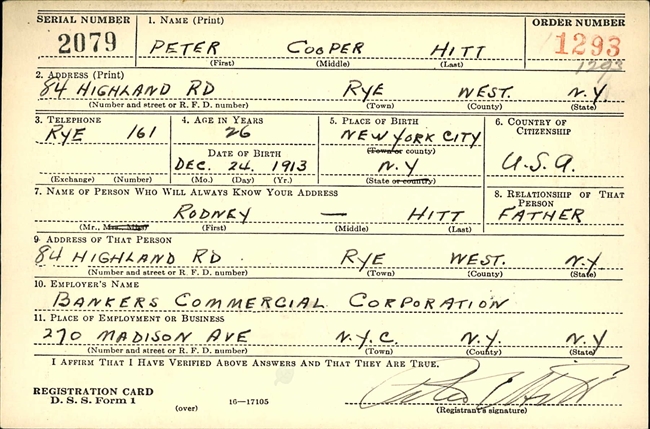 SERIAL NUMBER 1. NAME (Print) ORDER NUMBER
2079 PETER COOPER HITT 1293
(First) (Middle) (Last) 1293
2. ADDRESS (Print)
84 HIGHLAND RD RYE WEST. N.Y.
(Number and street or R. F. D. number) (Town) (County) (State)
3. TELEPHONE 4. AGE IN YEARS 5. PLACE OF BIRTH 6. COUNTRY OF CITIZENSHIP
RYE 161 26 NEW YORK CITY
DATE OF BIRTH (Town or county)
DEC. 24. 1913 N.Y U.S.A.
(Exchange) (Number) (Mo.) (Day) (Yr.) (State or country)
7. NAME OF PERSON WHO WILL ALWAYS KNOW YOUR ADDRESS 8. RELATIONSHIP OF THAT PERSON
RODNEY — HITT FATHER
(Mr., Mrs., Miss) (First) (Middle) (Last)
9. ADDRESS OF THAT PERSON
84 HIGHLAND RD. RYE WEST. N.Y.
(Number and street or R. F. D. number) (Town) (County) (State)
10. EMPLOYER'S NAME
BANKERS COMMERCIAL CORPORATION
11. PLACE OF EMPLOYMENT OR BUSINESS
270 MADISON AVE N.Y.C. N.Y. N.Y
(Number and street or R. F. D. number) (Town) (County) (State)
I AFFIRM THAT I HAVE VERIFIED ABOVE ANSWERS AND THAT THEY ARE TRUE.
REGISTRATION CARD
D. S. S. Form 1 (over) 16—17105 (Registrant's signature)